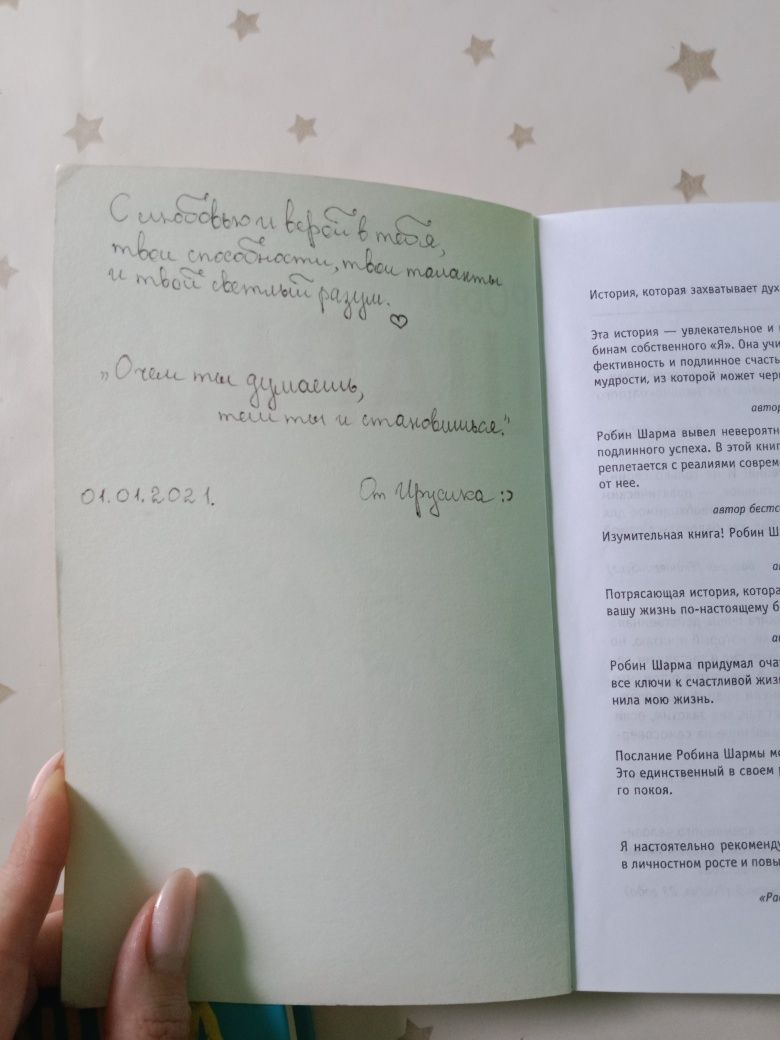 С любовью и верой в тебя,
твои способности, твои таланты
и твой светлый разум.
„О чем ты думаешь,
тем ты и становишься."
01.01.2021. От Ирусика :)
История, которая захватывает дух
Эта история — увлекательное и
бинам собственного «Я». Она учи
фективность и подлинное счасть
мудрости, из которой может чер
автор
Робин Шарма вывел невероятн
подлинного успеха. В этой книг
реплетается с реалиями соврем
от нее.
автор бестс
Изумительная книга! Робин Ш
а
Потрясающая история, котора
вашу жизнь по-настоящему б
а
Робин Шарма придумал оча
все ключи к счастливой жиз
нила мою жизнь.
Послание Робина Шармы м
Это единственный в своем
го покоя.
Я настоятельно рекоменду
в личностном росте и повы
«Ра